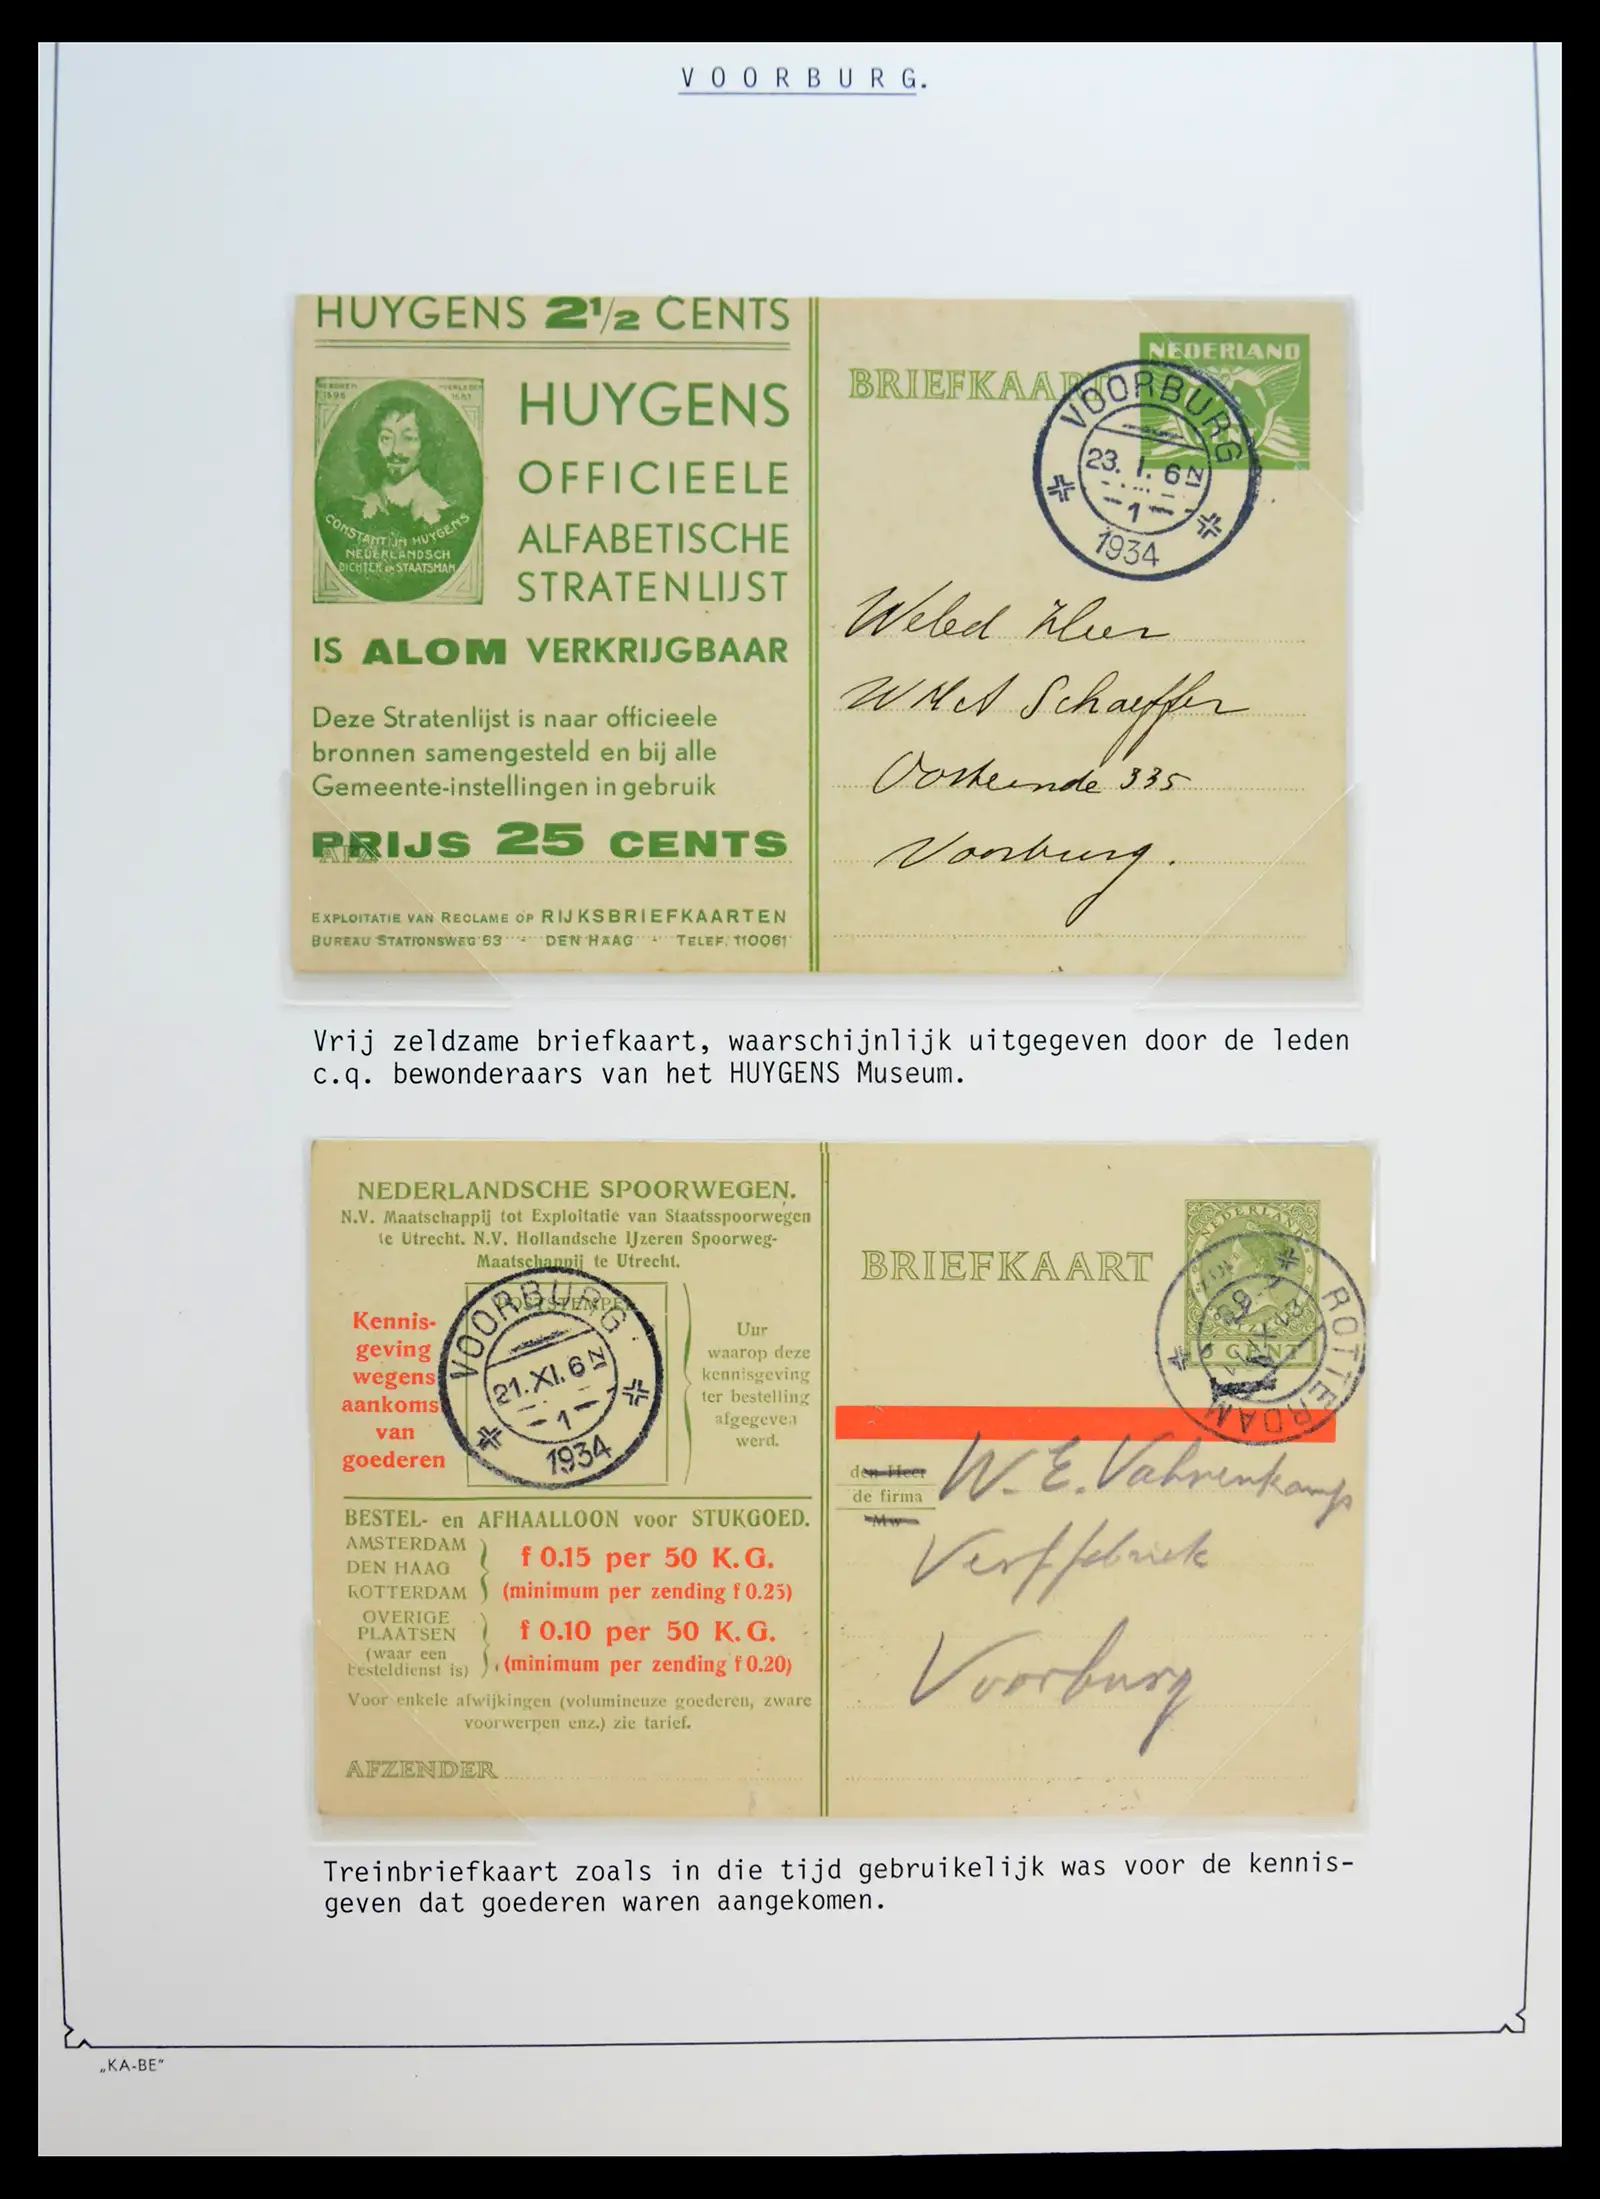 VOORBURG.
HUYGENS 2½ CENTS
CONSTANTIJN HUYGENS
NEDERLANDSCH
DICHTER EN STAATSMAN
HUYGENS
OFFICIEELE
ALFABETISCHE
STRATENLIJST
IS ALOM VERKRIJGBAAR
Deze Stratenlijst is naar officieele
bronnen samengesteld en bij alle
Gemeente-instellingen in gebruik
PRIJS 25 CENTS
EXPLOITATIE VAN RECLAME OP RIJKSBRIEFKAARTEN
BUREAU STATIONSWEG 53 - DEN HAAG - TELEF. 110061
BRIEFKAART
NEDERLAND
VOORBURG
23. I. 6 N
1
1934
Weled Heer
Schaeffer
Oosteinde 335
Voorburg.
Vrij zeldzame briefkaart, waarschijnlijk uitgegeven door de leden
c.q. bewonderaars van het HUYGENS Museum.
NEDERLANDSCHE SPOORWEGEN.
N.V. Maatschappij tot Exploitatie van Staatsspoorwegen
te Utrecht. N.V. Hollandsche IJzeren Spoorweg-
Maatschappij te Utrecht.
Kennis-
geving
wegens
aankoms
van
goederen
POSTSTEMPEL
VOORBURG
21. XI. 6 N
1
1934
Uur
waarop deze
kennisgeving
ter bestelling
afgegeven
werd.
BESTEL- en AFHAALLOON voor STUKGOED.
AMSTERDAM
DEN HAAG
ROTTERDAM
f 0.15 per 50 K.G.
(minimum per zending f 0.25)
OVERIGE
PLAATSEN
(waar een
besteldienst is)
f 0.10 per 50 K.G.
(minimum per zending f 0.20)
Voor enkele afwijkingen (volumineuze goederen, zware
voorwerpen enz.) zie tarief.
AFZENDER
BRIEFKAART
NEDERLAND
5 CENT
ROTTERDAM
den Heer
de firma
Mw
W. E. Vahrenkamp
Verffabriek
Voorburg
Treinbriefkaart zoals in die tijd gebruikelijk was voor de kennis-
geven dat goederen waren aangekomen.
„KA-BE”